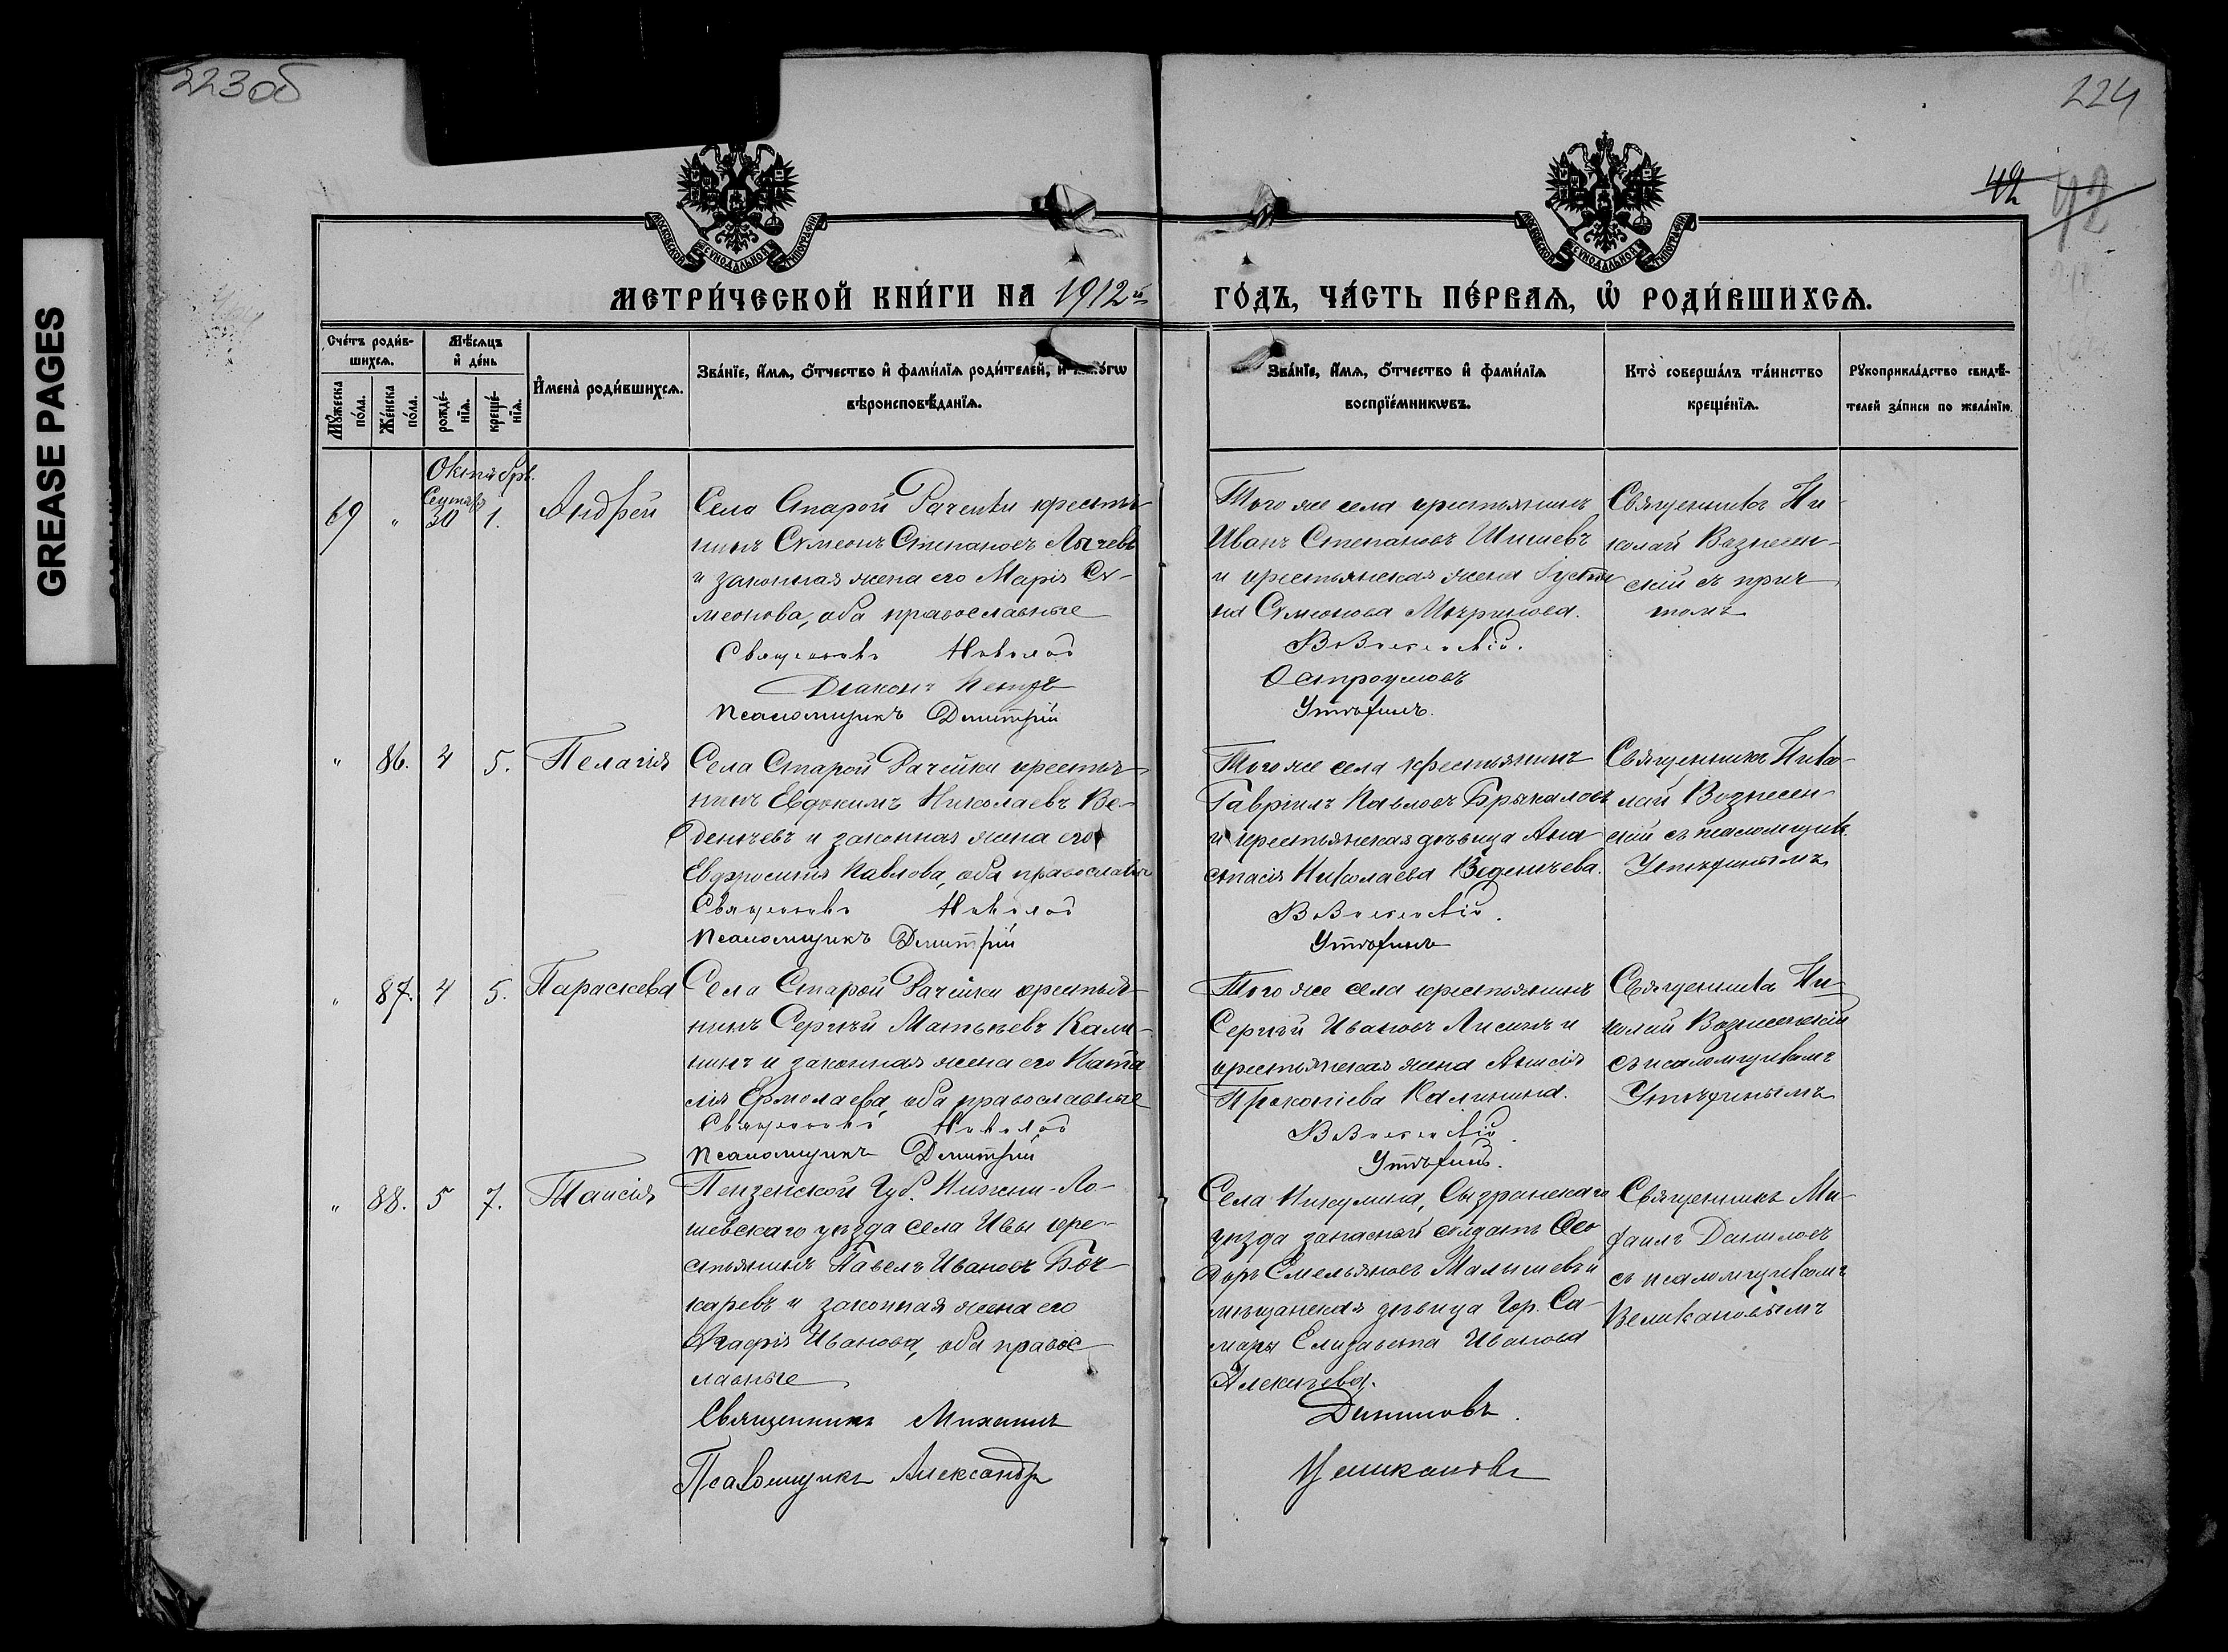 223об
224
42
42
GREASE PAGES
МОСКОВСКОЙ СѴНОДАЛЬНОЙ ТИПОГРАФІИ
МОСКОВСКОЙ СѴНОДАЛЬНОЙ ТИПОГРАФІИ
МЕТРИ́ЧЕСКОЙ КНИ́ГИ НА 1912й
ГО́ДЪ, ЧА́СТЬ ПЕ́РВАѦ, Ѽ РОДИ́ВШИХСѦ.
Сче́тъ роди́в-
шихсѧ.
Мꙋ́жеска по́ла.
Же́нска по́ла.
Мѣ́сѧцъ
и҆ де́нь
рожде́-
нїѧ.
креще́-
нїѧ.
И҆мена̀ роди́вшихсѧ.
Зва́нїе, и҆́мѧ, ѻ҆́тчество и҆ фами́лїѧ роди́телей, и҆
вѣроисповѣ́данїѧ.
Зва́нїе, и҆́мѧ, ѻ҆́тчество и҆ фами́лїѧ
воспрїе́мникѡвъ.
Кто̀ соверша́лъ та́инство
креще́нїѧ.
Рꙋкоприкла́дство свидѣ́-
телей за́писи по жела́нїю.
Октябрь.
69 " Сентябр 30 1. Андрей
Села Старой Рачейки крестья-
нинъ Сѵмеонъ Степановъ Лычевъ
и законная жена его Марія Сѵ-
меонова, оба православные
Священникъ Николай
Діаконъ Петръ
Псаломщикъ Димитрій
Того же села крестьянинъ
Иванъ Степановъ Шишевъ
и крестьянская жена Іусти-
на Сѵмеонова
Вознесенскій.
Остроумовъ
Утѣхинъ.
Священникъ Ни-
колай Вознесен-
скій съ прич
томъ
" 86. 4 5. Пелагія
Села Старой Рачейки крестья-
нинъ Евдокимъ Николаевъ Ве-
денѣевъ и законная жена его
Евфросинія Павлова, оба православн
Священникъ Николай
Псаломщикъ Димитрій
Того же села крестьянинъ
Гавріилъ Павловъ Брыкаловъ
и крестьянская дѣвица Ана-
стасія Николаева Веденѣева.
Вознесенскій.
Утѣхинъ
Священникъ Нико-
лай Вознесен-
скій съ псаломщик.
Утѣхинымъ
" 87. 4 5. Параскева
Села Старой Рачейки крестья-
нинъ Сергѣй Матвѣевъ Кали-
нинъ и законная жена его Ната
лія Ермолаева, оба православные
Священникъ Николай
Псаломщикъ Димитрій
Того же села крестьянинъ
Сергѣй Ивановъ Лисинъ и
крестьянская жена Анисія
Прокопіева Калинина.
Вознесенскій.
Утѣхинъ.
Священникъ Ни-
колай Вознесенскій
съ псаломщикомъ
Утѣхинымъ
" 88. 5 7. Таисія
Пензенской Губ. Нижни-Ло-
мовскаго уѣзда села Ивы кре-
стьянинъ Павелъ Ивановъ Боч-
каревъ и законная жена его
Агафія Иванова, оба правос-
лавные
Священникъ Михаилъ
Псаломщикъ Александръ
Села Никулина, Сызранскаго
уѣзда запасный солдатъ Ѳео
доръ Емельяновъ Малышевъ и
мѣщанская дѣвица Гор. Са-
мары Елизавета Иванова
Алексѣева.
Даниловъ.
Великановъ
Священникъ Ми-
хаилъ Даниловъ
съ псаломщикомъ
Великановымъ